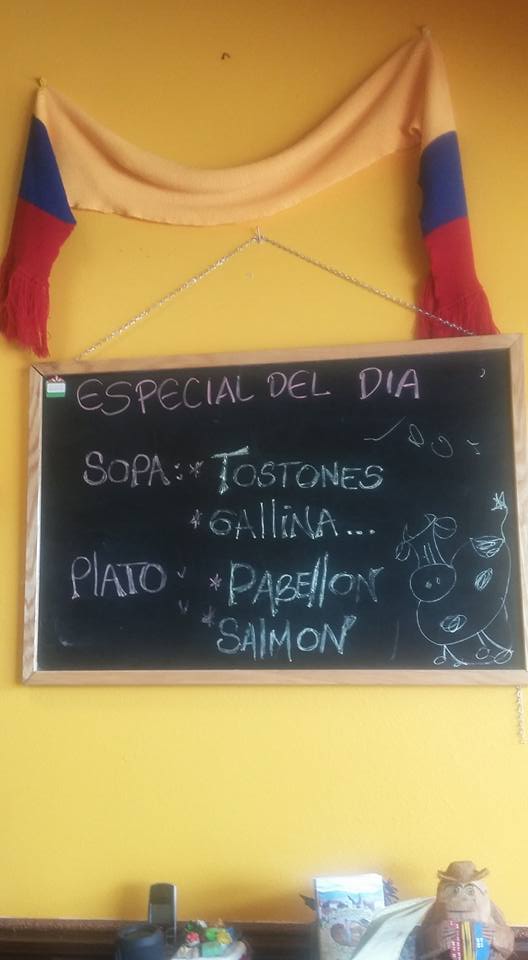 ESPECIAL DEL DIA
SOPA: * TOSTONES
* GALLINA...
PLATO * PABELLON
* SALMON